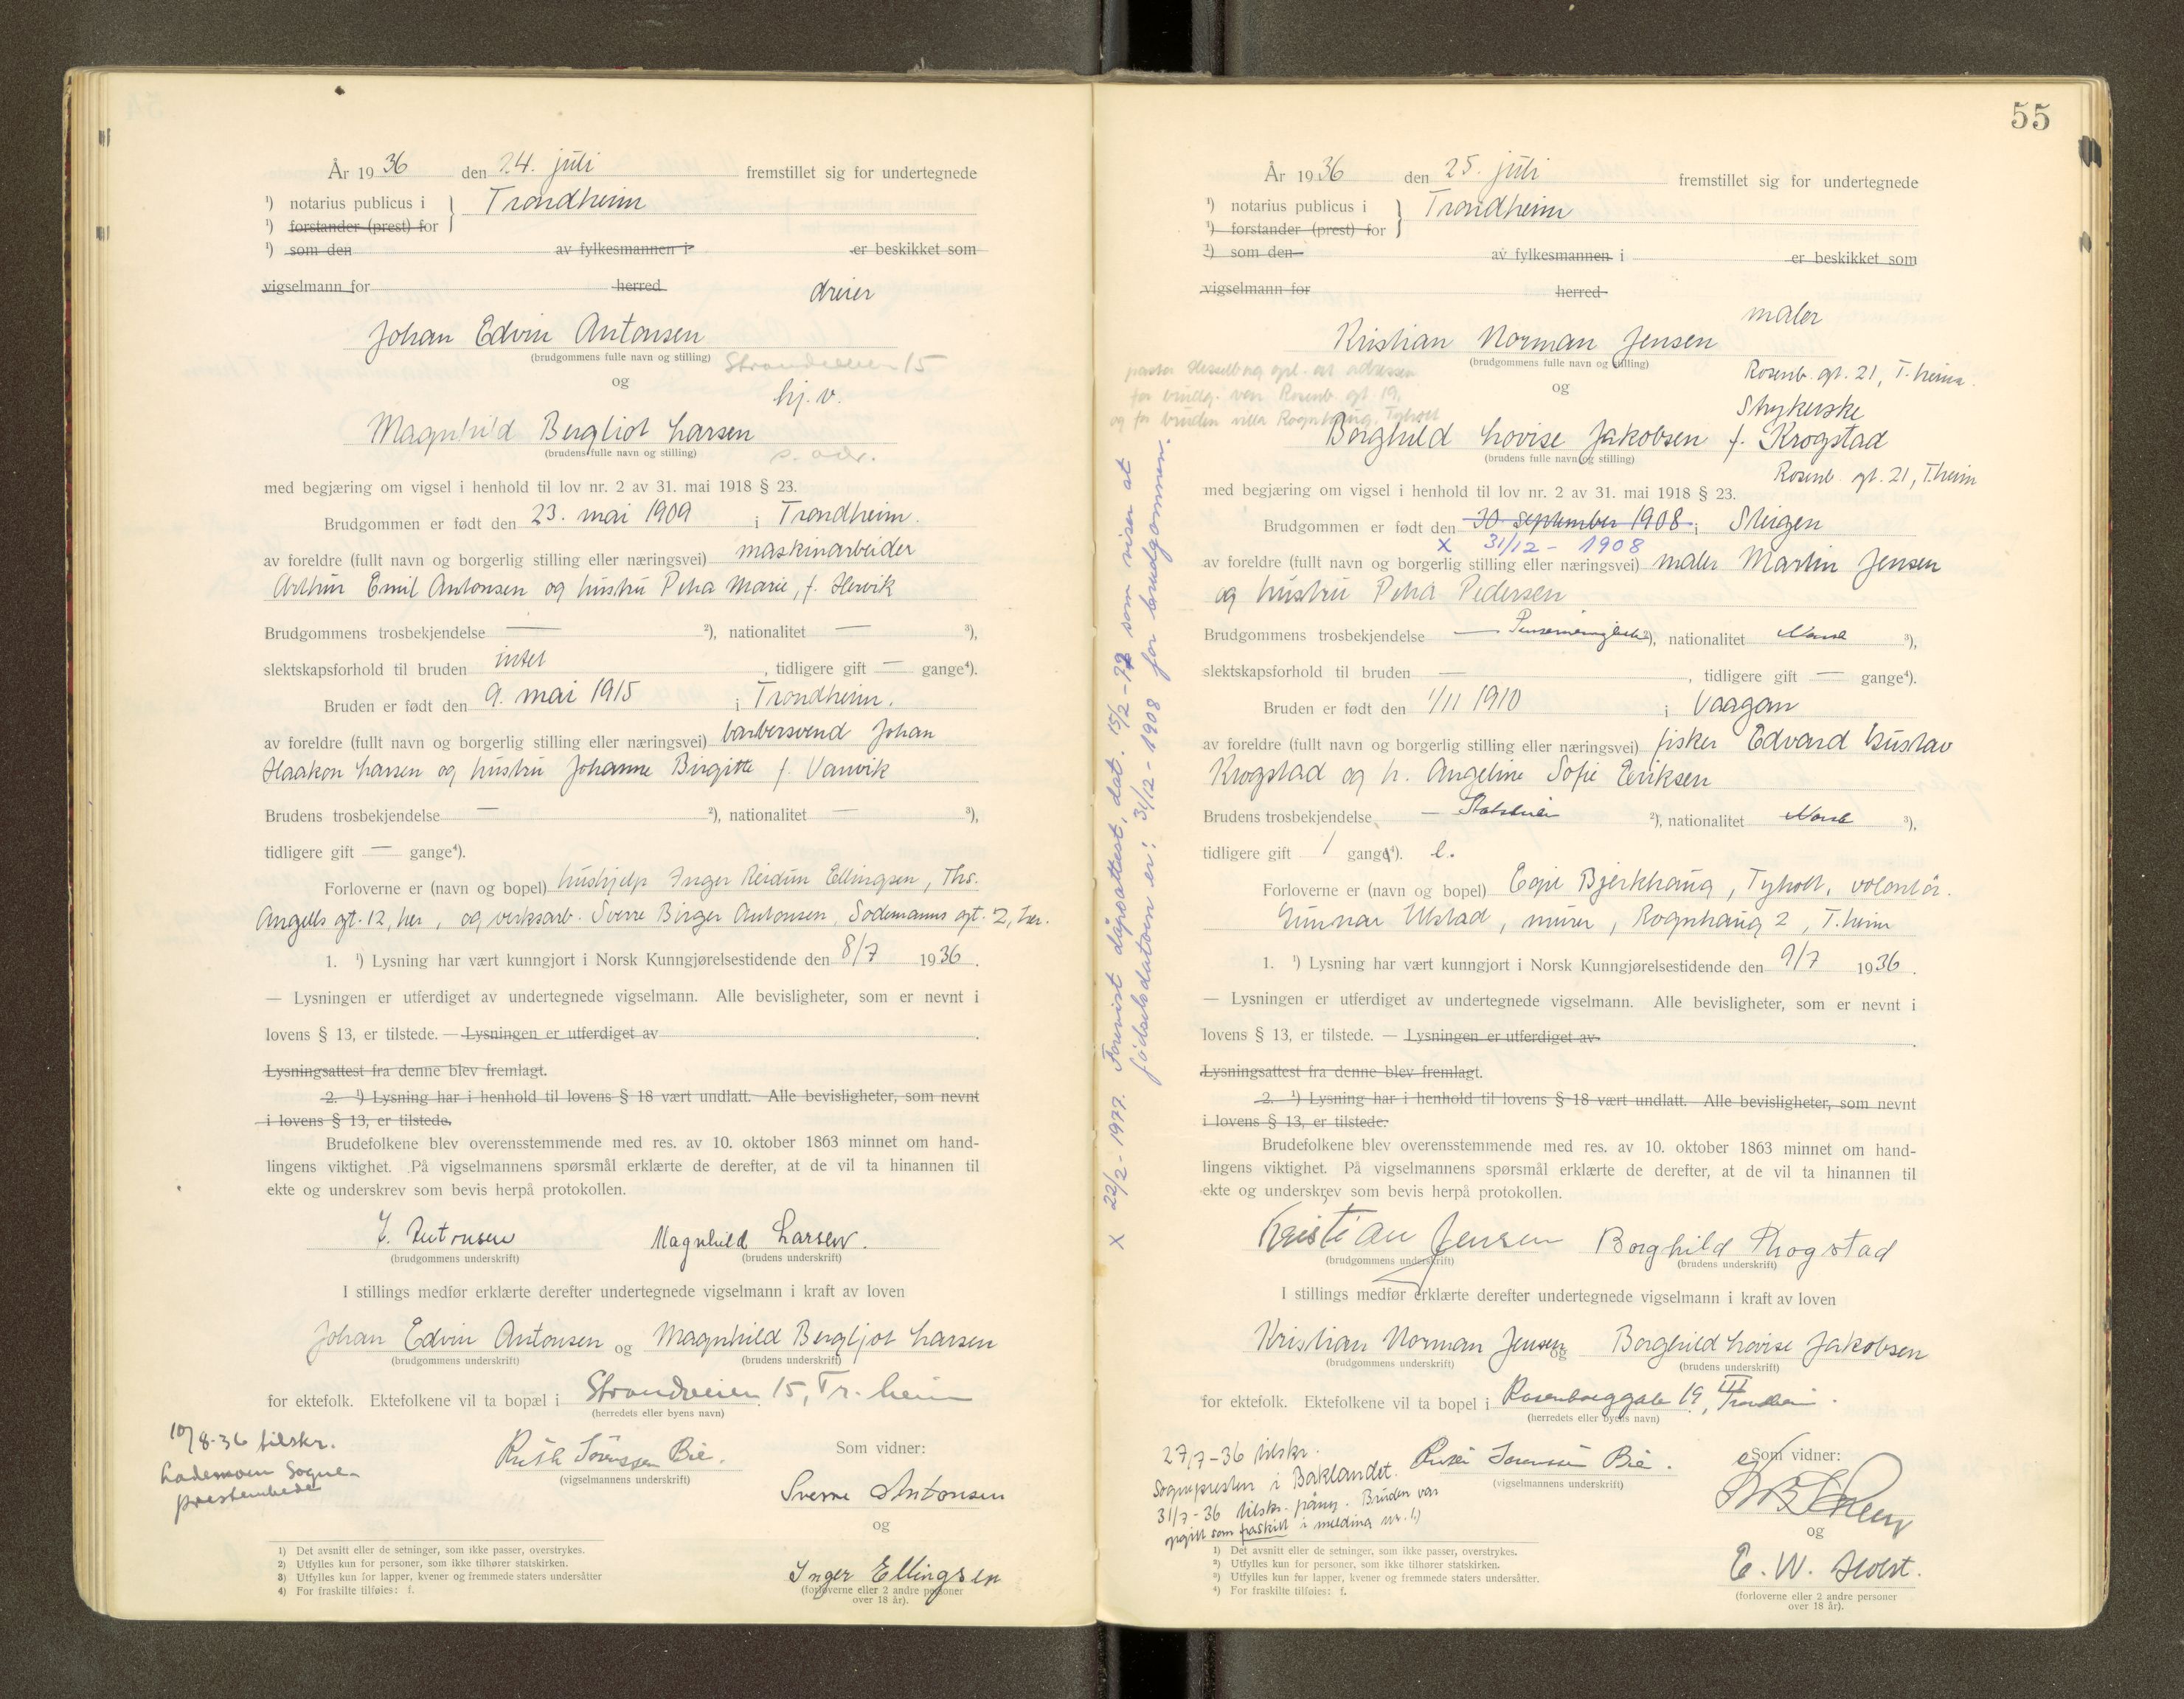 År 1936 den 24. juli fremstillet sig for undertegnede
¹) notarius publicus i } Trondheim
¹) forstander (prest) for
¹) som den av fylkesmannen i er beskikket som
vigselmann for herred
dreier
Johan Edvin Antonsen
(brudgommens fulle navn og stilling) Strandveien 15
og
hj. v.
Magnhild Bergliot Larsen
(brudens fulle navn og stilling) s. adr.
med begjæring om vigsel i henhold til lov nr. 2 av 31. mai 1918 § 23.
Brudgommen er født den 23. mai 1909 i Trondheim.
av foreldre (fullt navn og borgerlig stilling eller næringsvei) maskinarbeider
Arthur Emil Antonsen og hustru Petra Marie, f. Hervik
Brudgommens trosbekjendelse — ²), nationalitet — ³),
slektskapsforhold til bruden intet, tidligere gift — gange⁴).
Bruden er født den 9. mai 1915 i Trondheim.
av foreldre (fullt navn og borgerlig stilling eller næringsvei) barbersvend Johan
Haakon Larsen og hustru Johanne Birgitte f. Vanvik
Brudens trosbekjendelse — ²), nationalitet — ³),
tidligere gift — gange⁴).
Forloverne er (navn og bopel) hushjelp Inger Reidun Ellingsen, Ths.
Angells gt. 12, her, og verksarb. Sverre Birger Antonsen, Sodemanns gt. 2, her.
1. ¹) Lysning har vært kunngjort i Norsk Kunngjørelsestidende den 8/7 1936.
— Lysningen er utferdiget av undertegnede vigselmann. Alle bevisligheter, som er nevnt i
lovens § 13, er tilstede. — Lysningen er utferdiget av
Lysningsattest fra denne blev fremlagt.
2. ¹) Lysning har i henhold til lovens § 18 vært undlatt. Alle bevisligheter, som nevnt
i lovens § 13, er tilstede.
Brudefolkene blev overensstemmende med res. av 10. oktober 1863 minnet om hand-
lingens viktighet. På vigselmannens spørsmål erklærte de derefter, at de vil ta hinannen til
ekte og underskrev som bevis herpå protokollen.
J. Antonsen Magnhild Larsen.
(brudgommens underskrift) (brudens underskrift)
I stillings medfør erklærte derefter undertegnede vigselmann i kraft av loven
Johan Edvin Antonsen og Magnhild Bergljot Larsen
(brudgommens underskrift) (brudens underskrift)
for ektefolk. Ektefolkene vil ta bopæl i Strandveien 15, Tr.heim
(herredets eller byens navn)
10/8-36 tilskr.
Lademoen Sogne-
prestembede
Ruth Sørenssen Bie.
(vigselmannens underskrift)
Som vidner:
Sverre Antonsen
og
Inger Ellingsen
(forloverne eller 2 andre personer
over 18 år).
1) Det avsnitt eller de setninger, som ikke passer, overstrykes.
2) Utfylles kun for personer, som ikke tilhører statskirken.
3) Utfylles kun for lapper, kvener og fremmede staters undersåtter
4) For fraskilte tilføies: f.
55
År 1936 den 25. juli fremstillet sig for undertegnede
¹) notarius publicus i } Trondheim
¹) forstander (prest) for
¹) som den av fylkesmannen i er beskikket som
vigselmann for herred
maler
Kristian Norman Jensen
(brudgommens fulle navn og stilling)
Rosenb. gt. 21, T.heim.
og
pastor Hesselberg opl. at adressen
for brudg. var Rosenb. gt 19,
og for bruden villa Rognhaug, Tyholt
Strykerske
Borghild Lovise Jakobsen f. Krogstad
(brudens fulle navn og stilling)
Rosenb. gt. 21, T.heim
med begjæring om vigsel i henhold til lov nr. 2 av 31. mai 1918 § 23.
Brudgommen er født den 30 september 1908 i Steigen
x 31/12 - 1908
av foreldre (fullt navn og borgerlig stilling eller næringsvei) maler Martin Jensen
og hustru Petra Pedersen
Brudgommens trosbekjendelse — ²), nationalitet Norsk ³),
slektskapsforhold til bruden —, tidligere gift — gange⁴).
Bruden er født den 1/11 1910 i Vaagan
av foreldre (fullt navn og borgerlig stilling eller næringsvei) fisker Edvard Gustav
Krogstad og h. Angeline Sofie Eriksen
Brudens trosbekjendelse — ²), nationalitet Norsk ³),
tidligere gift 1 gang⁴).
Forloverne er (navn og bopel) Egil Bjerkhaug, Tyholt, volontør.
Gunnar Ulstad, murer, Rognhaug 2, T.heim
1. ¹) Lysning har vært kunngjort i Norsk Kunngjørelsestidende den 9/7 1936.
— Lysningen er utferdiget av undertegnede vigselmann. Alle bevisligheter, som er nevnt i
lovens § 13, er tilstede. — Lysningen er utferdiget av
Lysningsattest fra denne blev fremlagt.
2. ¹) Lysning har i henhold til lovens § 18 vært undlatt. Alle bevisligheter, som nevnt
i lovens § 13, er tilstede.
Brudefolkene blev overensstemmende med res. av 10. oktober 1863 minnet om hand-
lingens viktighet. På vigselmannens spørsmål erklærte de derefter, at de vil ta hinannen til
ekte og underskrev som bevis herpå protokollen.
x 22/2-1977. Forevist dåpsattest, dat. 15/2-77 som viser at
fødselsdatoen er: 31/12-1908 for brudgommen.
Kristian Jensen Borghild Krogstad
(brudgommens underskrift) (brudens underskrift)
I stillings medfør erklærte derefter undertegnede vigselmann i kraft av loven
Kristian Norman Jensen og Borghild Lovise Jakobsen
(brudgommens underskrift) (brudens underskrift)
for ektefolk. Ektefolkene vil ta bopel i Rosenborggate 19 III, Trondheim.
(herredets eller byens navn)
27/7-36 tilskr.
Sognepresten i Baklandet.
31/7-36 tilskr. påny. Bruden var
opgitt som fraskilt i melding nr. 1)
Ruth Sørenssen Bie.
(vigselmannens underskrift)
Som vidner:
og
E. W. Holst.
(forloverne eller 2 andre personer
over 18 år).
1) Det avsnitt eller de setninger, som ikke passer, overstrykes.
²) Utfylles kun for personer, som ikke tilhører statskirken.
³) Utfylles kun for lapper, kvener og fremmede staters undersåtter.
⁴) For fraskilte tilføies: f.